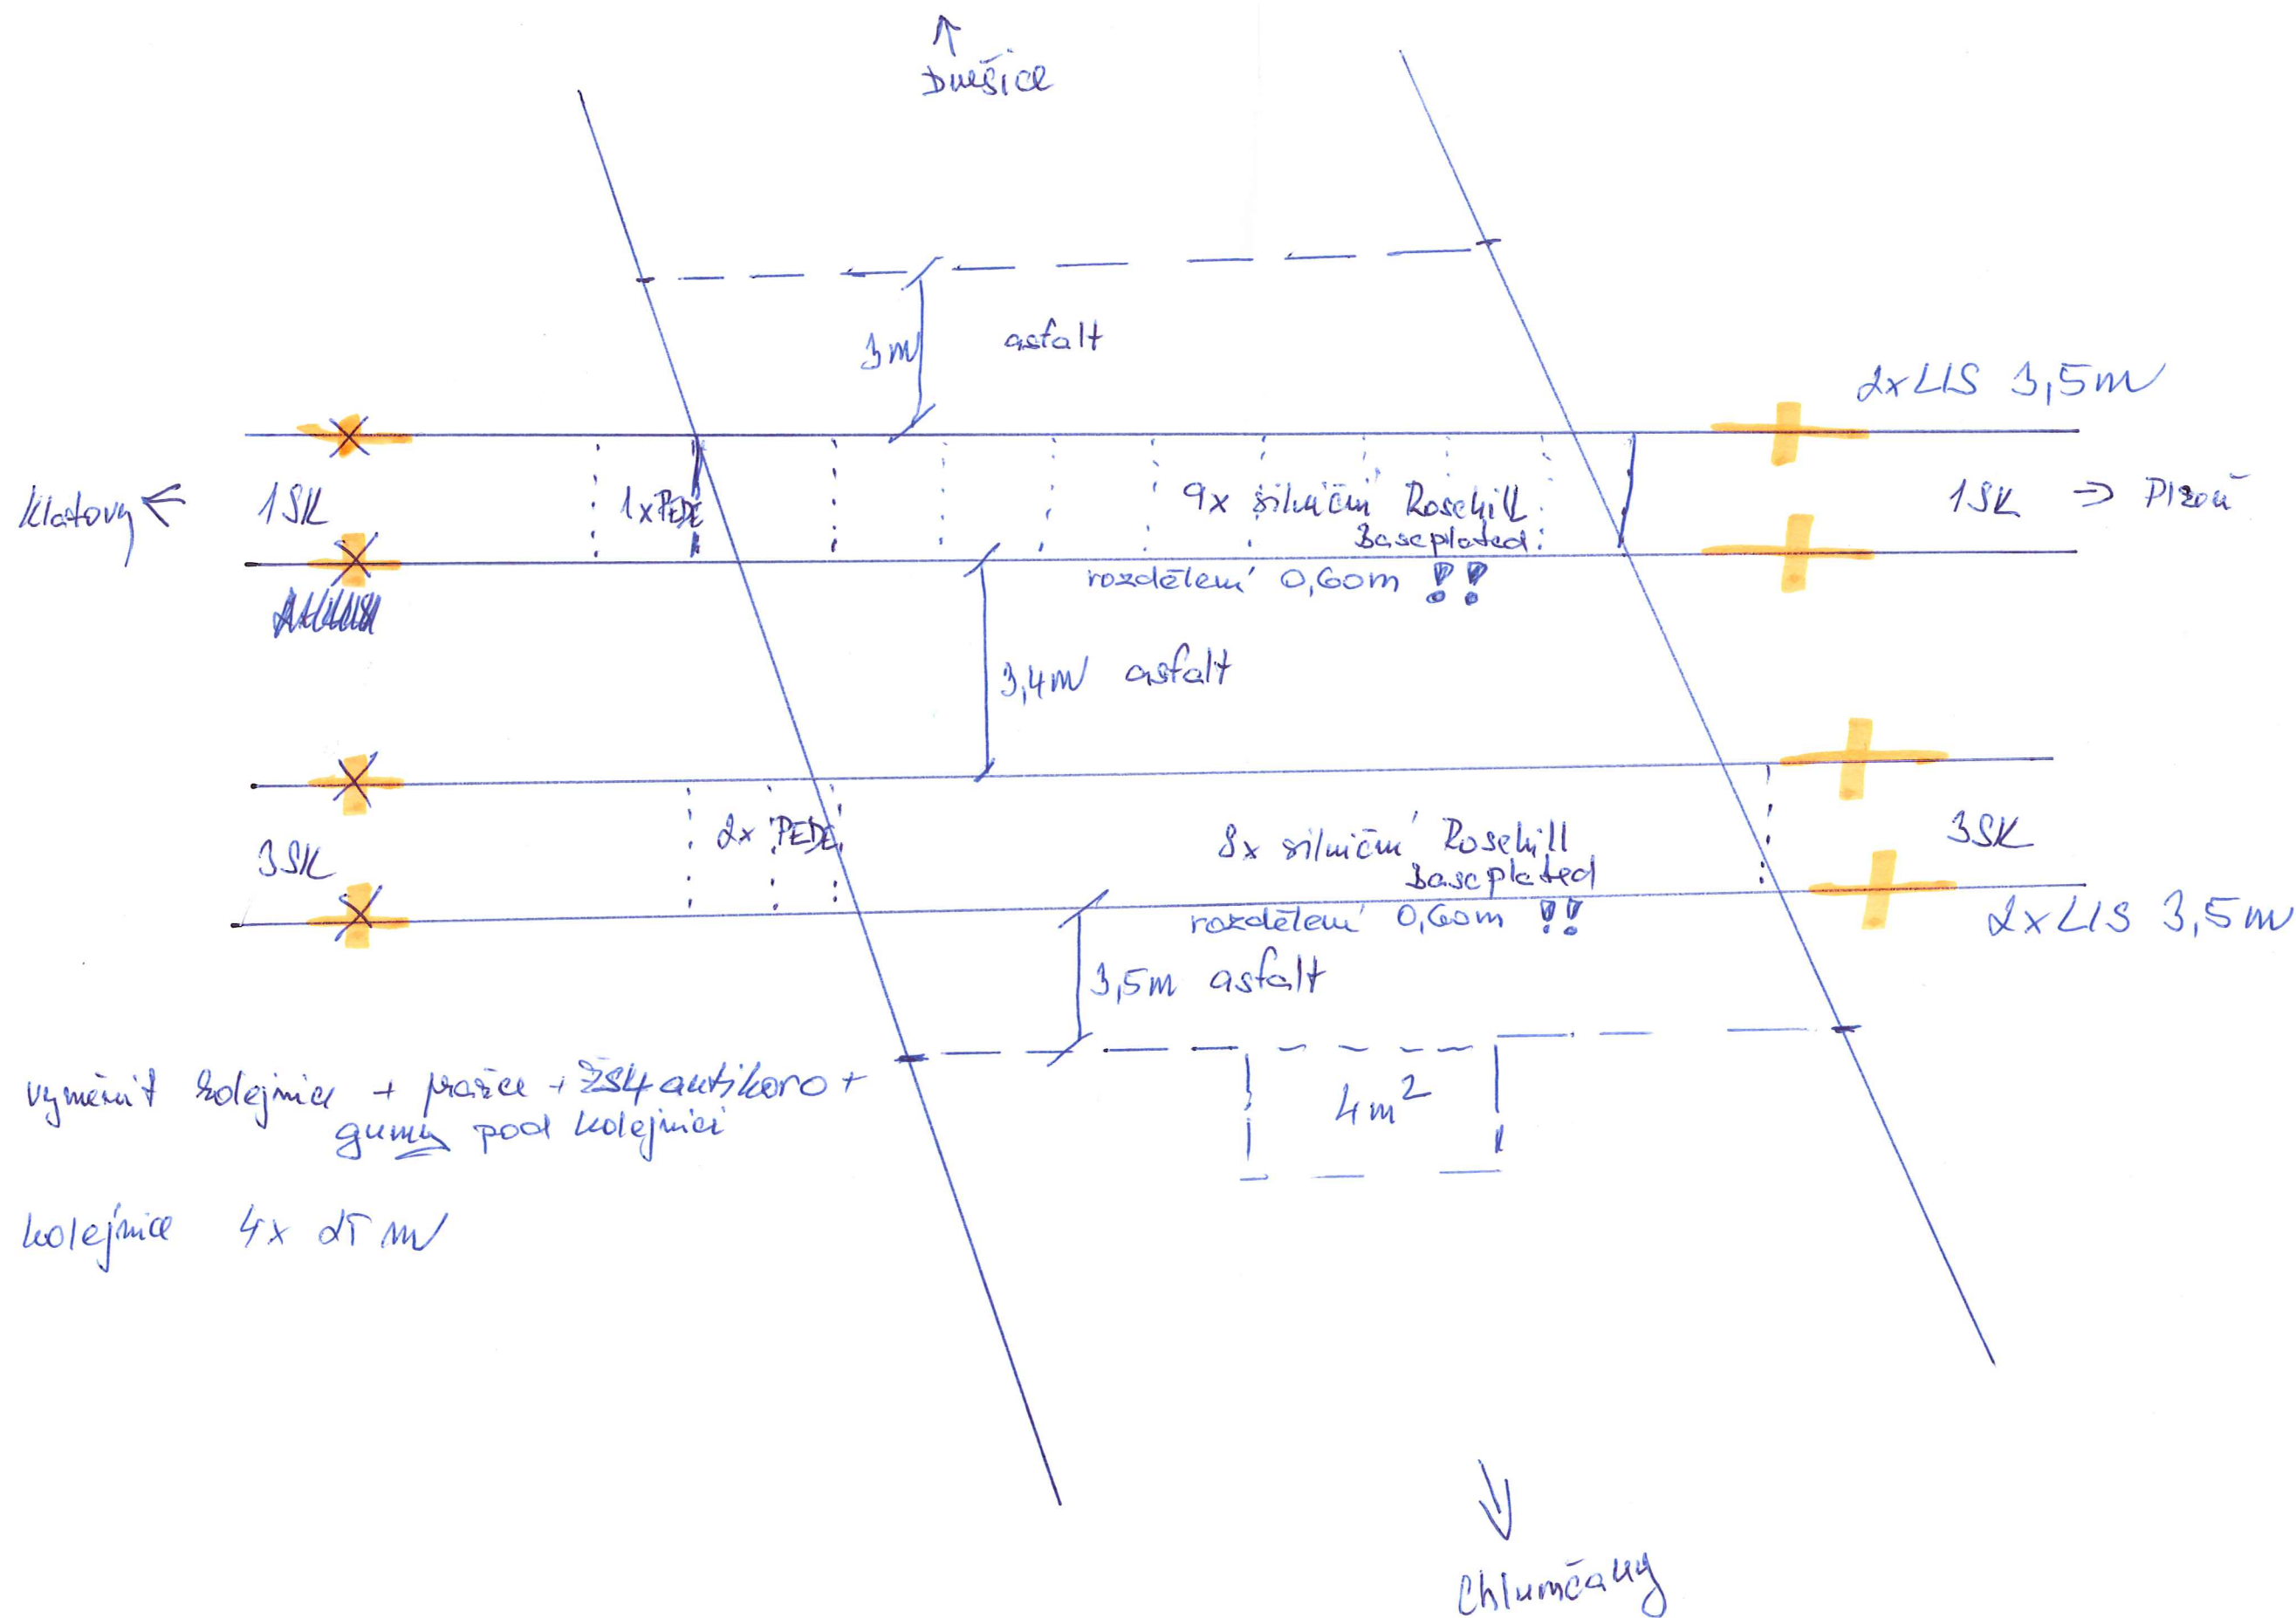 Dnešice
asfalt
3m
2xLIS 3,5m
Klatovy
1SK
1xPEDE
9x silniční Rosehill
Baseplated
1SK
Plzeň
rozdělení 0,60m !!
3,4m asfalt
2x PEDE
8x silniční Rosehill
Baseplated
3SK
3SK
rozdělení 0,60m !!
2xLIS 3,5m
3,5m asfalt
vyměnit kolejnice + pražce + ŽS4 antikoro +
gumy pod kolejnici
4m²
kolejnice 4x 25 m
Chlumčany